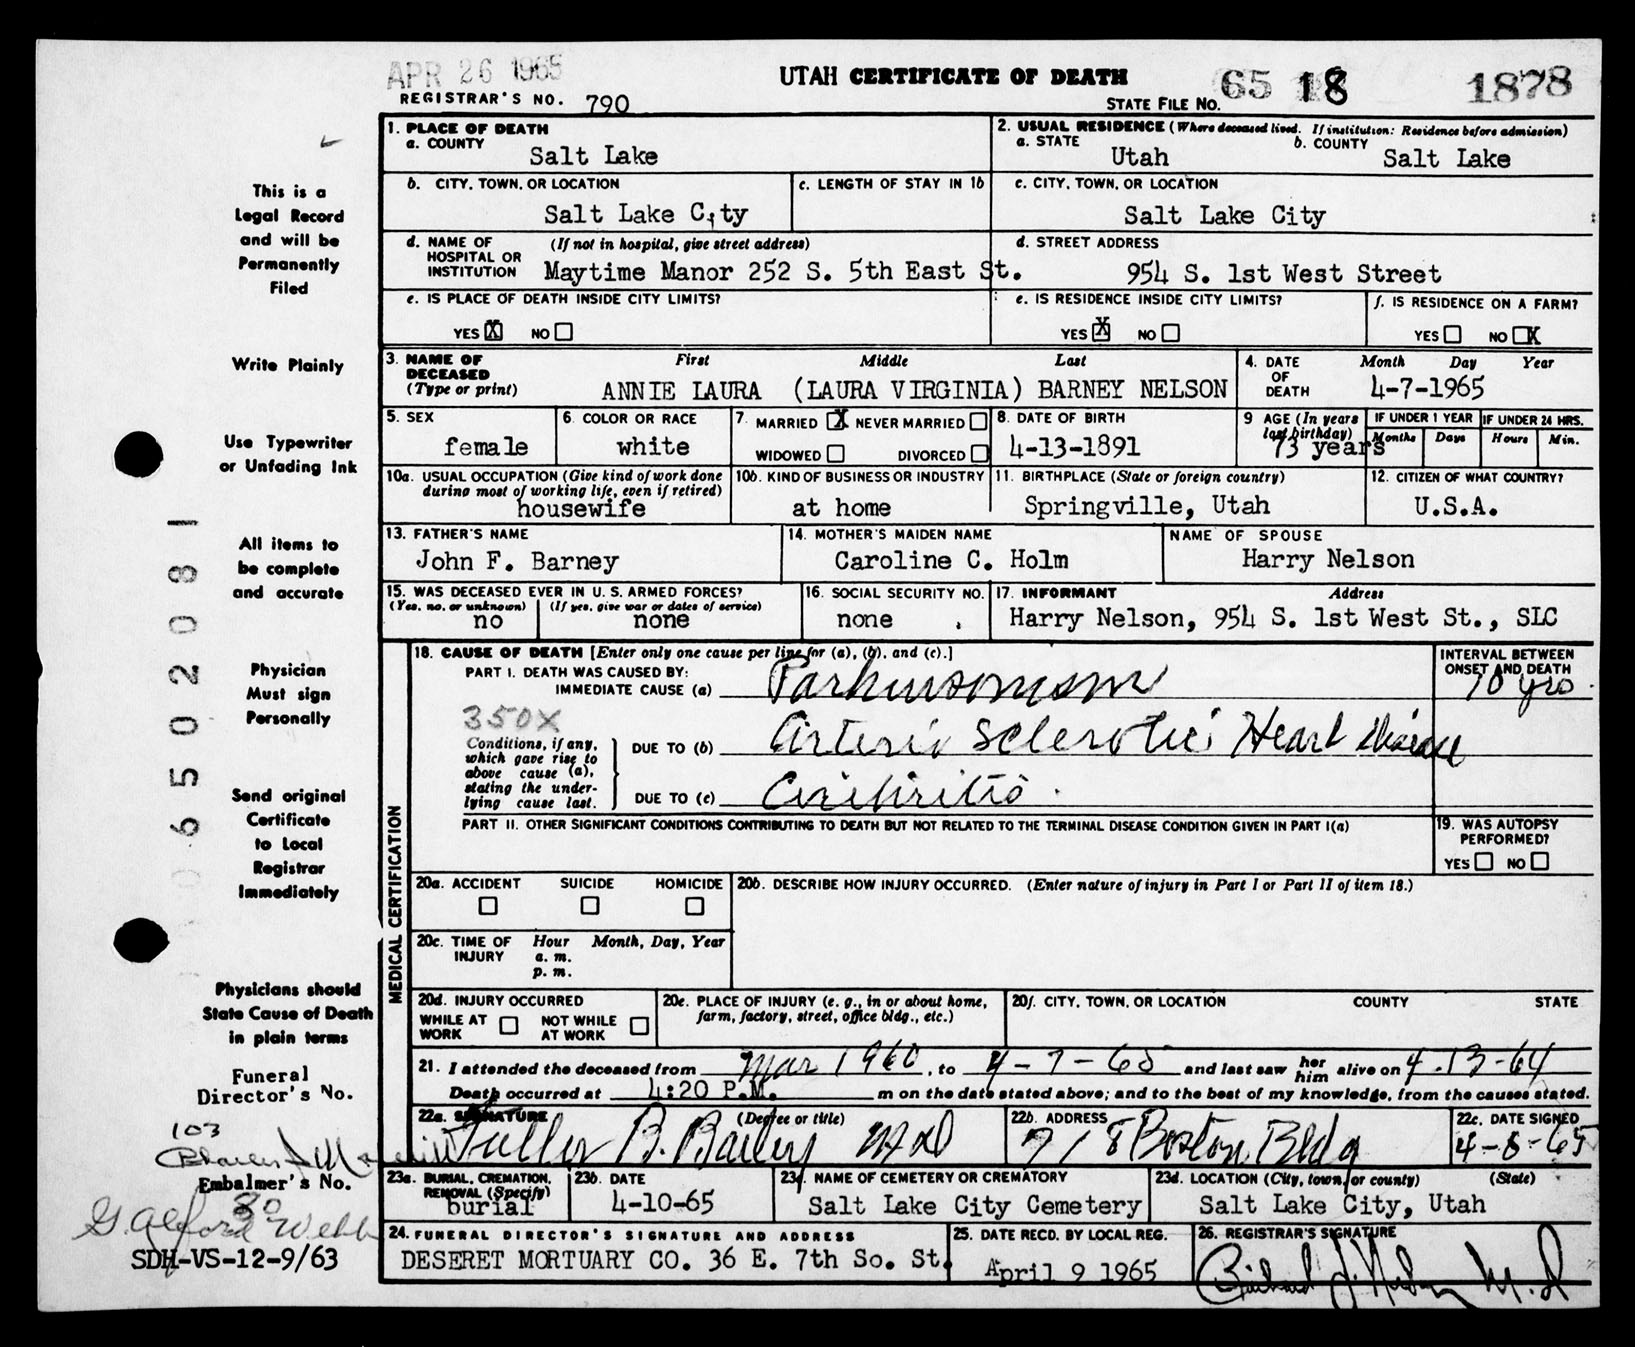 APR 26 1965
UTAH CERTIFICATE OF DEATH
65 18 1878
REGISTRAR'S NO. 790
STATE FILE NO.
1. PLACE OF DEATH
a. COUNTY
Salt Lake
2. USUAL RESIDENCE (Where deceased lived. If institution: Residence before admission)
a. STATE
Utah
b. COUNTY
Salt Lake
b. CITY, TOWN, OR LOCATION
Salt Lake City
c. LENGTH OF STAY IN 1b
c. CITY, TOWN, OR LOCATION
Salt Lake City
d. NAME OF HOSPITAL OR INSTITUTION
(If not in hospital, give street address)
Maytime Manor 252 S. 5th East St.
d. STREET ADDRESS
954 S. 1st West Street
e. IS PLACE OF DEATH INSIDE CITY LIMITS?
YES X NO
e. IS RESIDENCE INSIDE CITY LIMITS?
YES X NO
f. IS RESIDENCE ON A FARM?
YES NO X
3. NAME OF DECEASED (Type or print)
First Middle Last
ANNIE LAURA (LAURA VIRGINIA) BARNEY NELSON
4. DATE OF DEATH
Month Day Year
4-7-1965
5. SEX
female
6. COLOR OR RACE
white
7. MARRIED X NEVER MARRIED
WIDOWED DIVORCED
8. DATE OF BIRTH
4-13-1891
9 AGE (In years last birthday)
73 years
IF UNDER 1 YEAR
Months Days
IF UNDER 24 HRS.
Hours Min.
10a. USUAL OCCUPATION (Give kind of work done during most of working life, even if retired)
housewife
10b. KIND OF BUSINESS OR INDUSTRY
at home
11. BIRTHPLACE (State or foreign country)
Springville, Utah
12. CITIZEN OF WHAT COUNTRY?
U.S.A.
13. FATHER'S NAME
John F. Barney
14. MOTHER'S MAIDEN NAME
Caroline C. Holm
NAME OF SPOUSE
Harry Nelson
15. WAS DECEASED EVER IN U.S. ARMED FORCES?
(Yes, no, or unknown) (If yes, give war or dates of service)
no none
16. SOCIAL SECURITY NO.
none
17. INFORMANT Address
Harry Nelson, 954 S. 1st West St., SLC
MEDICAL CERTIFICATION
18. CAUSE OF DEATH [Enter only one cause per line for (a), (b), and (c).]
PART I. DEATH WAS CAUSED BY:
IMMEDIATE CAUSE (a) Parkinsonism
INTERVAL BETWEEN ONSET AND DEATH
10 yrs.
350X
Conditions, if any, which gave rise to above cause (a), stating the underlying cause last.
DUE TO (b) Arterio Sclerotic Heart disease
DUE TO (c)
PART II. OTHER SIGNIFICANT CONDITIONS CONTRIBUTING TO DEATH BUT NOT RELATED TO THE TERMINAL DISEASE CONDITION GIVEN IN PART I(a)
19. WAS AUTOPSY PERFORMED?
YES NO
20a. ACCIDENT SUICIDE HOMICIDE
20b. DESCRIBE HOW INJURY OCCURRED. (Enter nature of injury in Part I or Part II of item 18.)
20c. TIME OF INJURY
Hour Month, Day, Year
a. m.
p. m.
20d. INJURY OCCURRED
WHILE AT WORK NOT WHILE AT WORK
20e. PLACE OF INJURY (e. g., in or about home, farm, factory, street, office bldg., etc.)
20f. CITY, TOWN, OR LOCATION COUNTY STATE
21. I attended the deceased from Mar 1960, to 4-7-65 and last saw her him alive on 4-13-64
Death occurred at 4:20 P.M. m on the date stated above; and to the best of my knowledge, from the causes stated.
22a. SIGNATURE (Degree or title)
Fuller B. Bailey MD
22b. ADDRESS
718 Boston Bldg
22c. DATE SIGNED
4-8-65
23a. BURIAL, CREMATION, REMOVAL (Specify)
burial
23b. DATE
4-10-65
23c. NAME OF CEMETERY OR CREMATORY
Salt Lake City Cemetery
23d. LOCATION (City, town, or county) (State)
Salt Lake City, Utah
24. FUNERAL DIRECTOR'S SIGNATURE AND ADDRESS
DESERET MORTUARY CO. 36 E. 7th So. St.
25. DATE RECD. BY LOCAL REG.
April 9 1965
26. REGISTRAR'S SIGNATURE
M.D
This is a
Legal Record
and will be
Permanently
Filed
Write Plainly
Use Typewriter
or Unfading Ink
All items to
be complete
and accurate
Physician
Must sign
Personally
Send original
Certificate
to Local
Registrar
Immediately
Physicians should
State Cause of Death
in plain terms
Funeral
Director's No.
103
Embalmer's No.
80
G. Alford Webb
SDH-VS-12-9/63
0 6 5 0 2 0 8 1